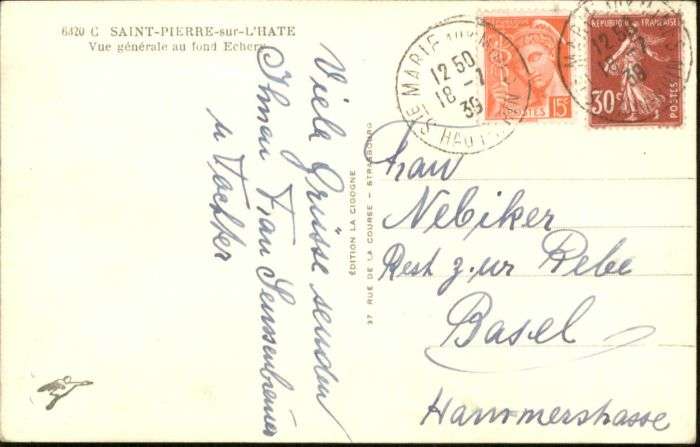 6420 C SAINT-PIERRE-sur-L'HATE
Vue générale au fond Echery
Viele Grüsse senden
Ihnen Frau
u Tochter
ÉDITION LA CIGOGNE
37 RUE DE LA COURSE - STRASBOURG
STE MARIE AUX MINES
12 50
18 -7
39
HAUT-RHIN
POSTES
15c
RÉPUBLIQUE FRANÇAISE
30c
POSTES
12 50
18 -7
39
Frau
Nebiker
Rest z.ur Rebe
Basel
Hammerstrasse